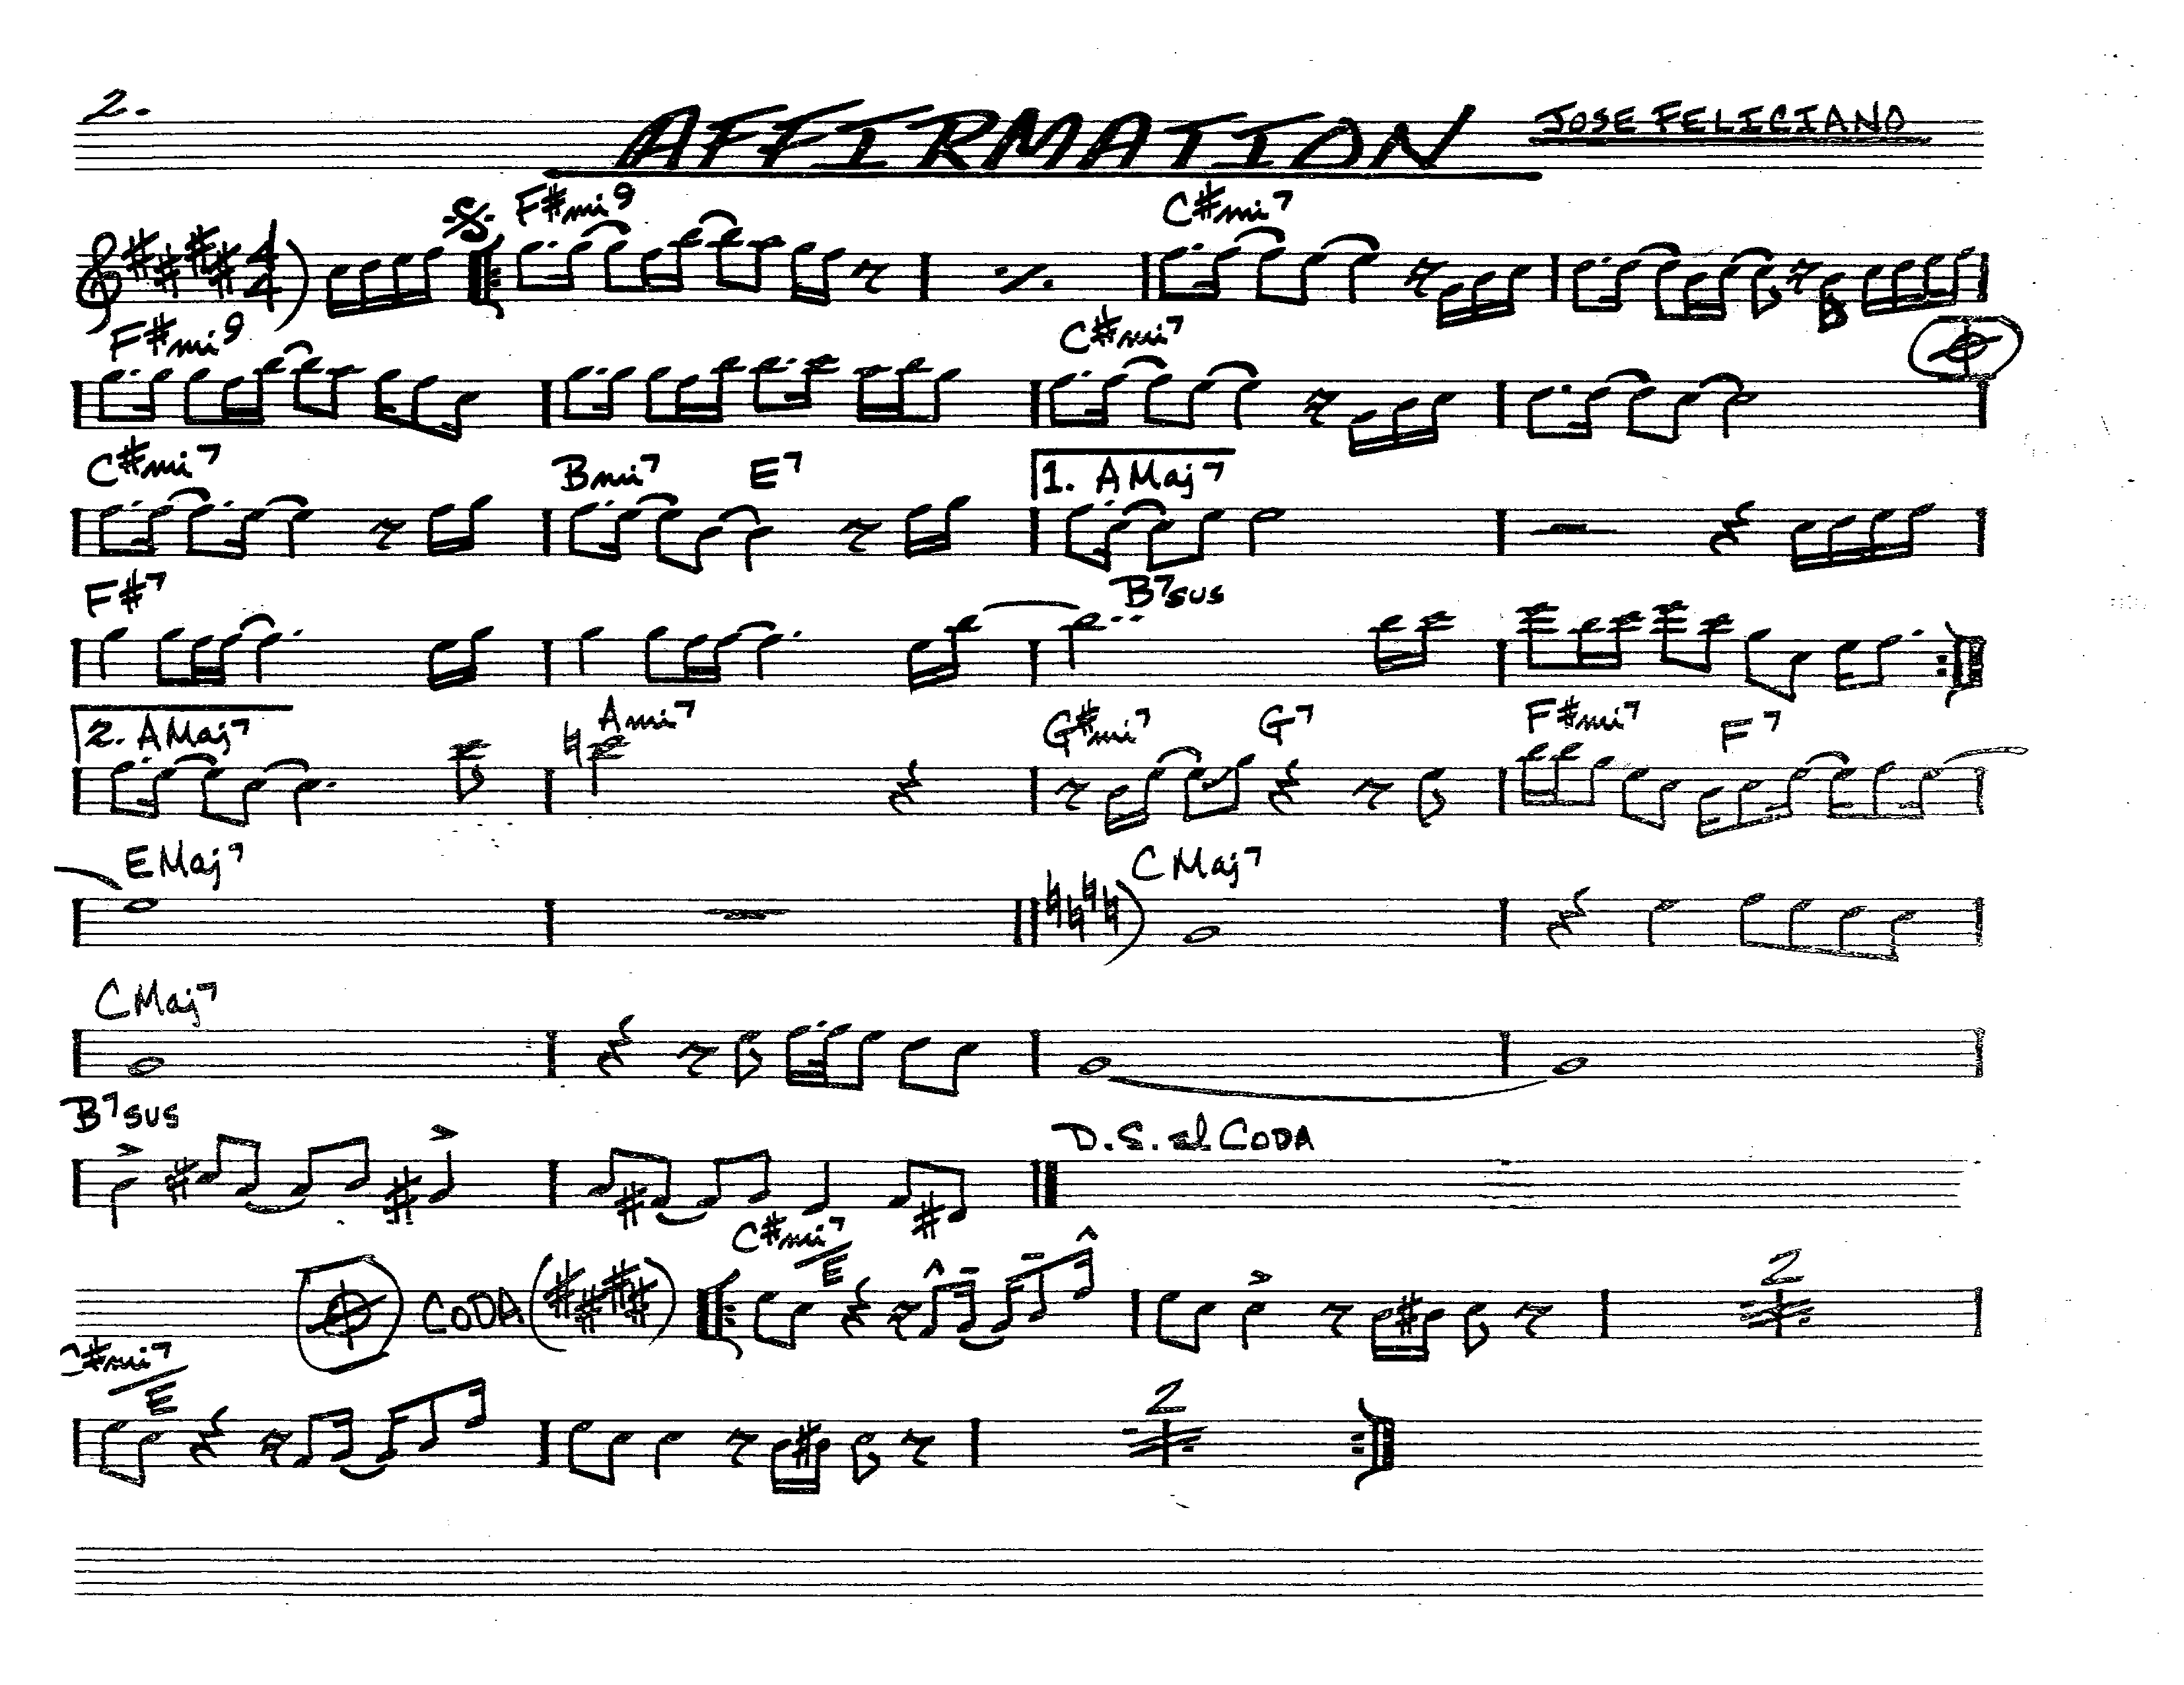 2.
AFFIRMATION
JOSE FELICIANO
4
4
F#mi9 C#mi7
F#mi9 C#mi7
C#mi7 Bmi7 E7 1. AMaj7
F#7 B7sus
2. AMaj7 Ami7 G#mi7 G7 F#mi7 F7
EMaj7 CMaj7
CMaj7
B7sus D.S. al CODA
CODA C#mi7/E 2
C#mi7/E 2